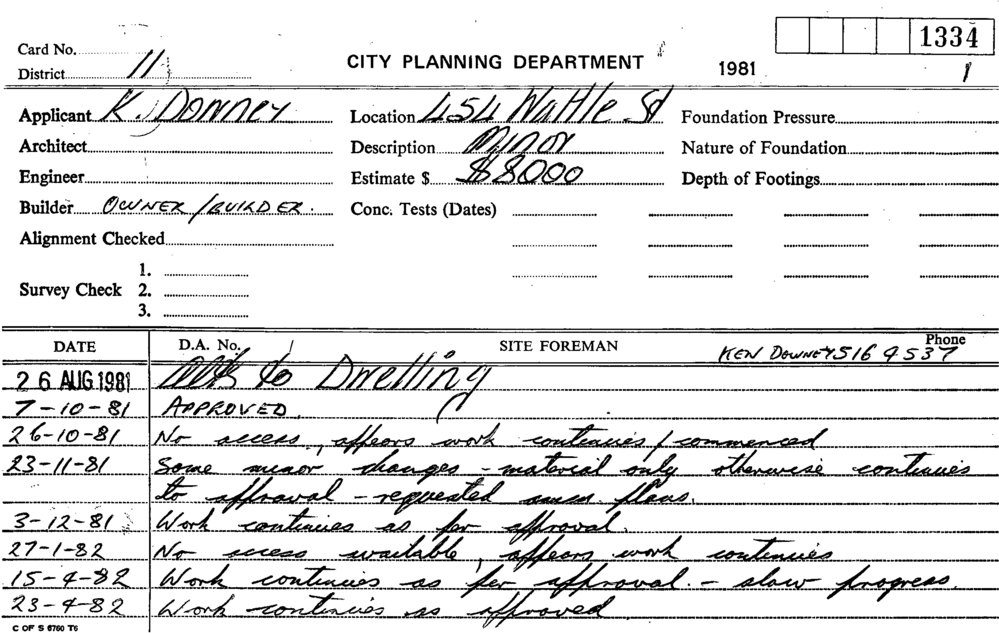 1334
Card No.
CITY PLANNING DEPARTMENT
1981
1
District 11
Applicant K. Downey Location 454 Wattle St Foundation Pressure
Architect Description Minor Nature of Foundation
Engineer Estimate $ $8000 Depth of Footings
Builder OWNER/BUILDER. Conc. Tests (Dates)
Alignment Checked
1.
Survey Check 2.
3.
DATE D.A. No. SITE FOREMAN Phone
KEN DOWNEY 516 4537
26 AUG 1981 Alts to Dwelling
7-10-81 APPROVED.
26-10-81 No access, appears work continues / commenced
23-11-81 Some minor changes - material only otherwise continues
to approval - requested amen plans.
3-12-81 Work continues as per approval.
27-1-82 No access available, appears work continues
15-4-82 Work continues as per approval. - slow progress.
23-4-82 Work continues as approved
C OF S 6760 T6